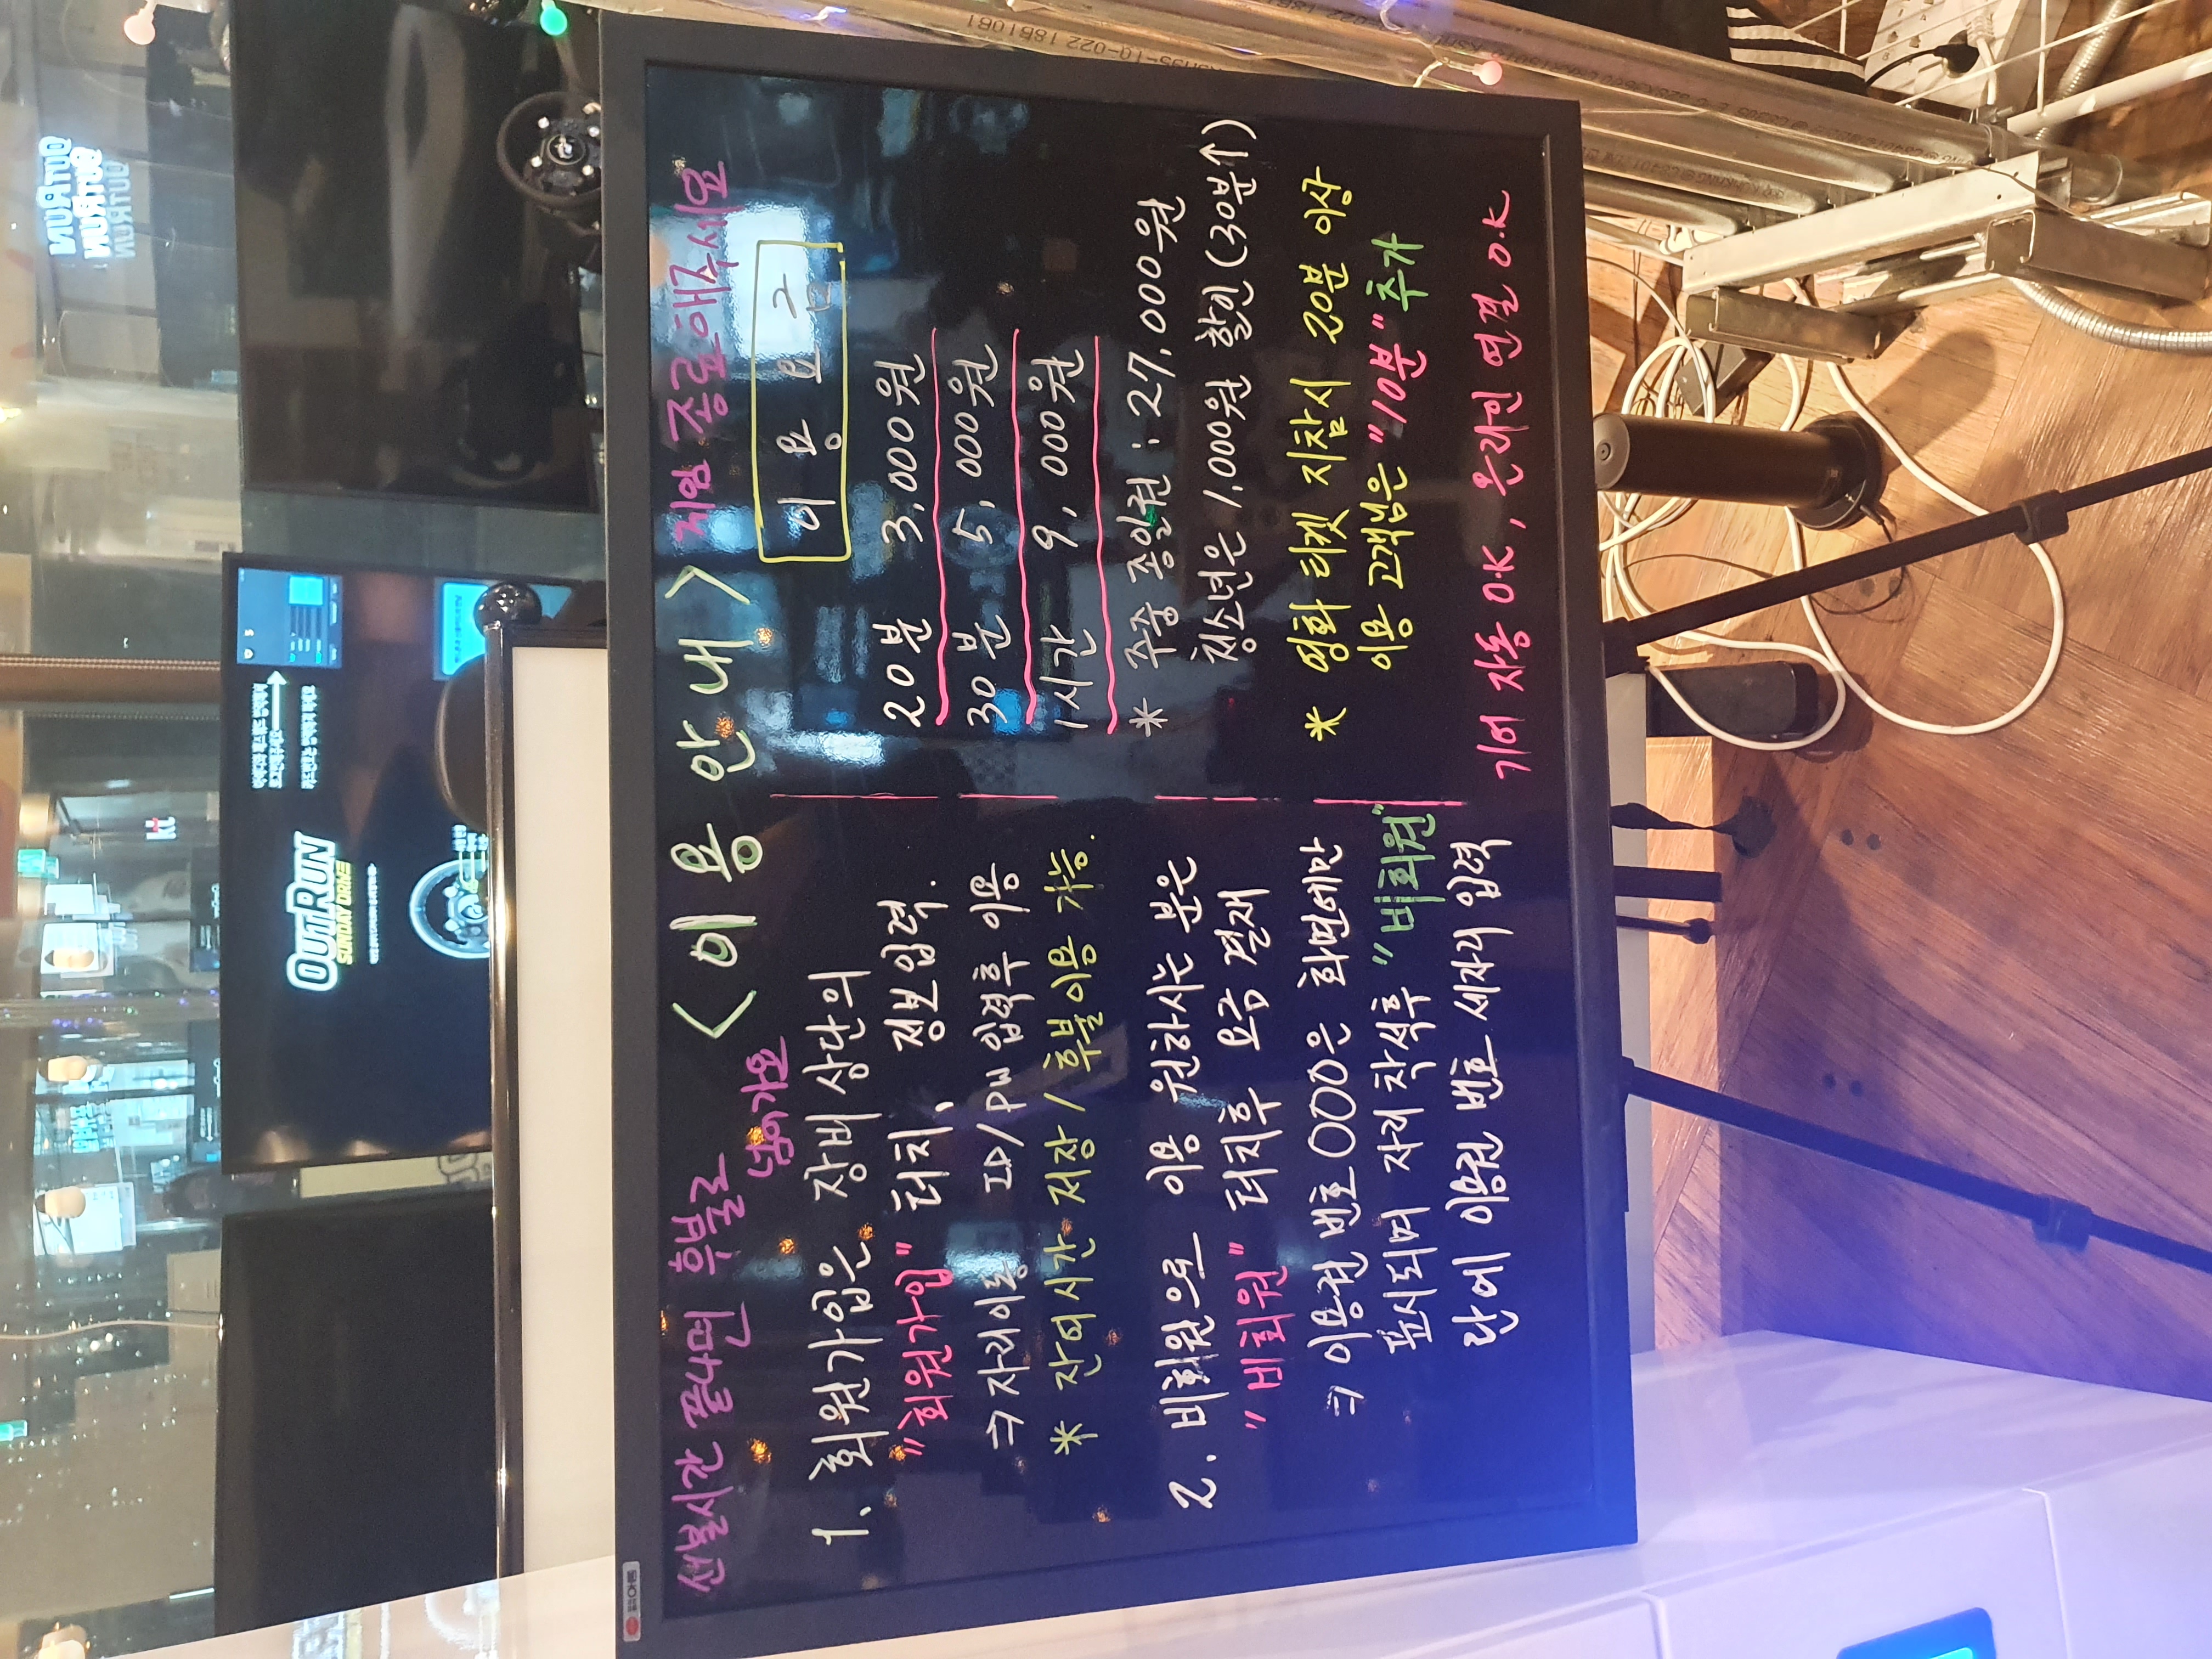 선불시간 끝나면 후불로
넘어가요
< 이 용 안 내 >
게임 종료해주세요
1. 회원가입은 장비 상단의
"회원가입" 터치, 정보입력.
⇒ 자리이동 ID/PW 입력후 이용
* 잔여시간 저장/후불이용 가능.
2. 비회원으로 이용 원하시는 분은
"비회원" 터치후 요금 결재
⇒ 이용권 번호 000은 화면에만
표시되며 자리 착석후 "비회원"
란에 이용권 번호 세자리 입력
이 용 요 금
20분 3,000원
30분 5,000원
1시간 9,000원
* 주중 종일권 : 27,000원
청소년은 1,000원 할인 (30분↑)
* 영화 티켓 지참시 20분 이상
이용 고객님은 "10분" 추가
기어 자동 O.K, 온라인 연결 O.K
OUTRUN
SUNDAY DRIVE
OUTRUN
OUTRUN
kt